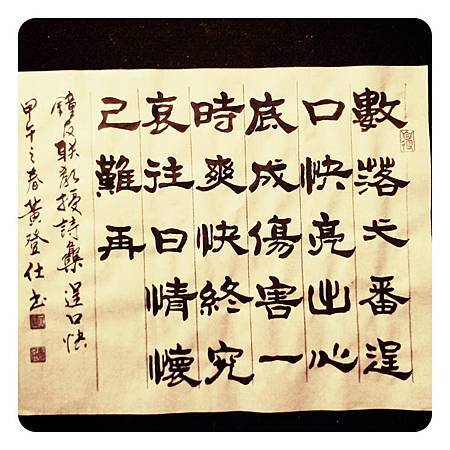 數落弌番逞
口快亮出心
底成傷害一
時爽快終究
哀往日情懷
已難再
鐘友联教授詩集 逞口快
甲午之春黃登仕书